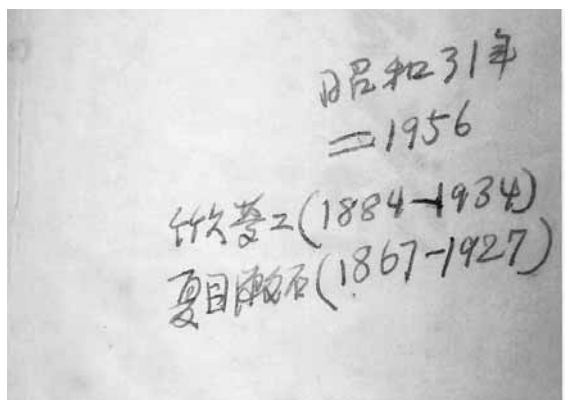 昭和31年
=1956
竹久夢二(1884-1934)
夏目漱石(1867-1927)